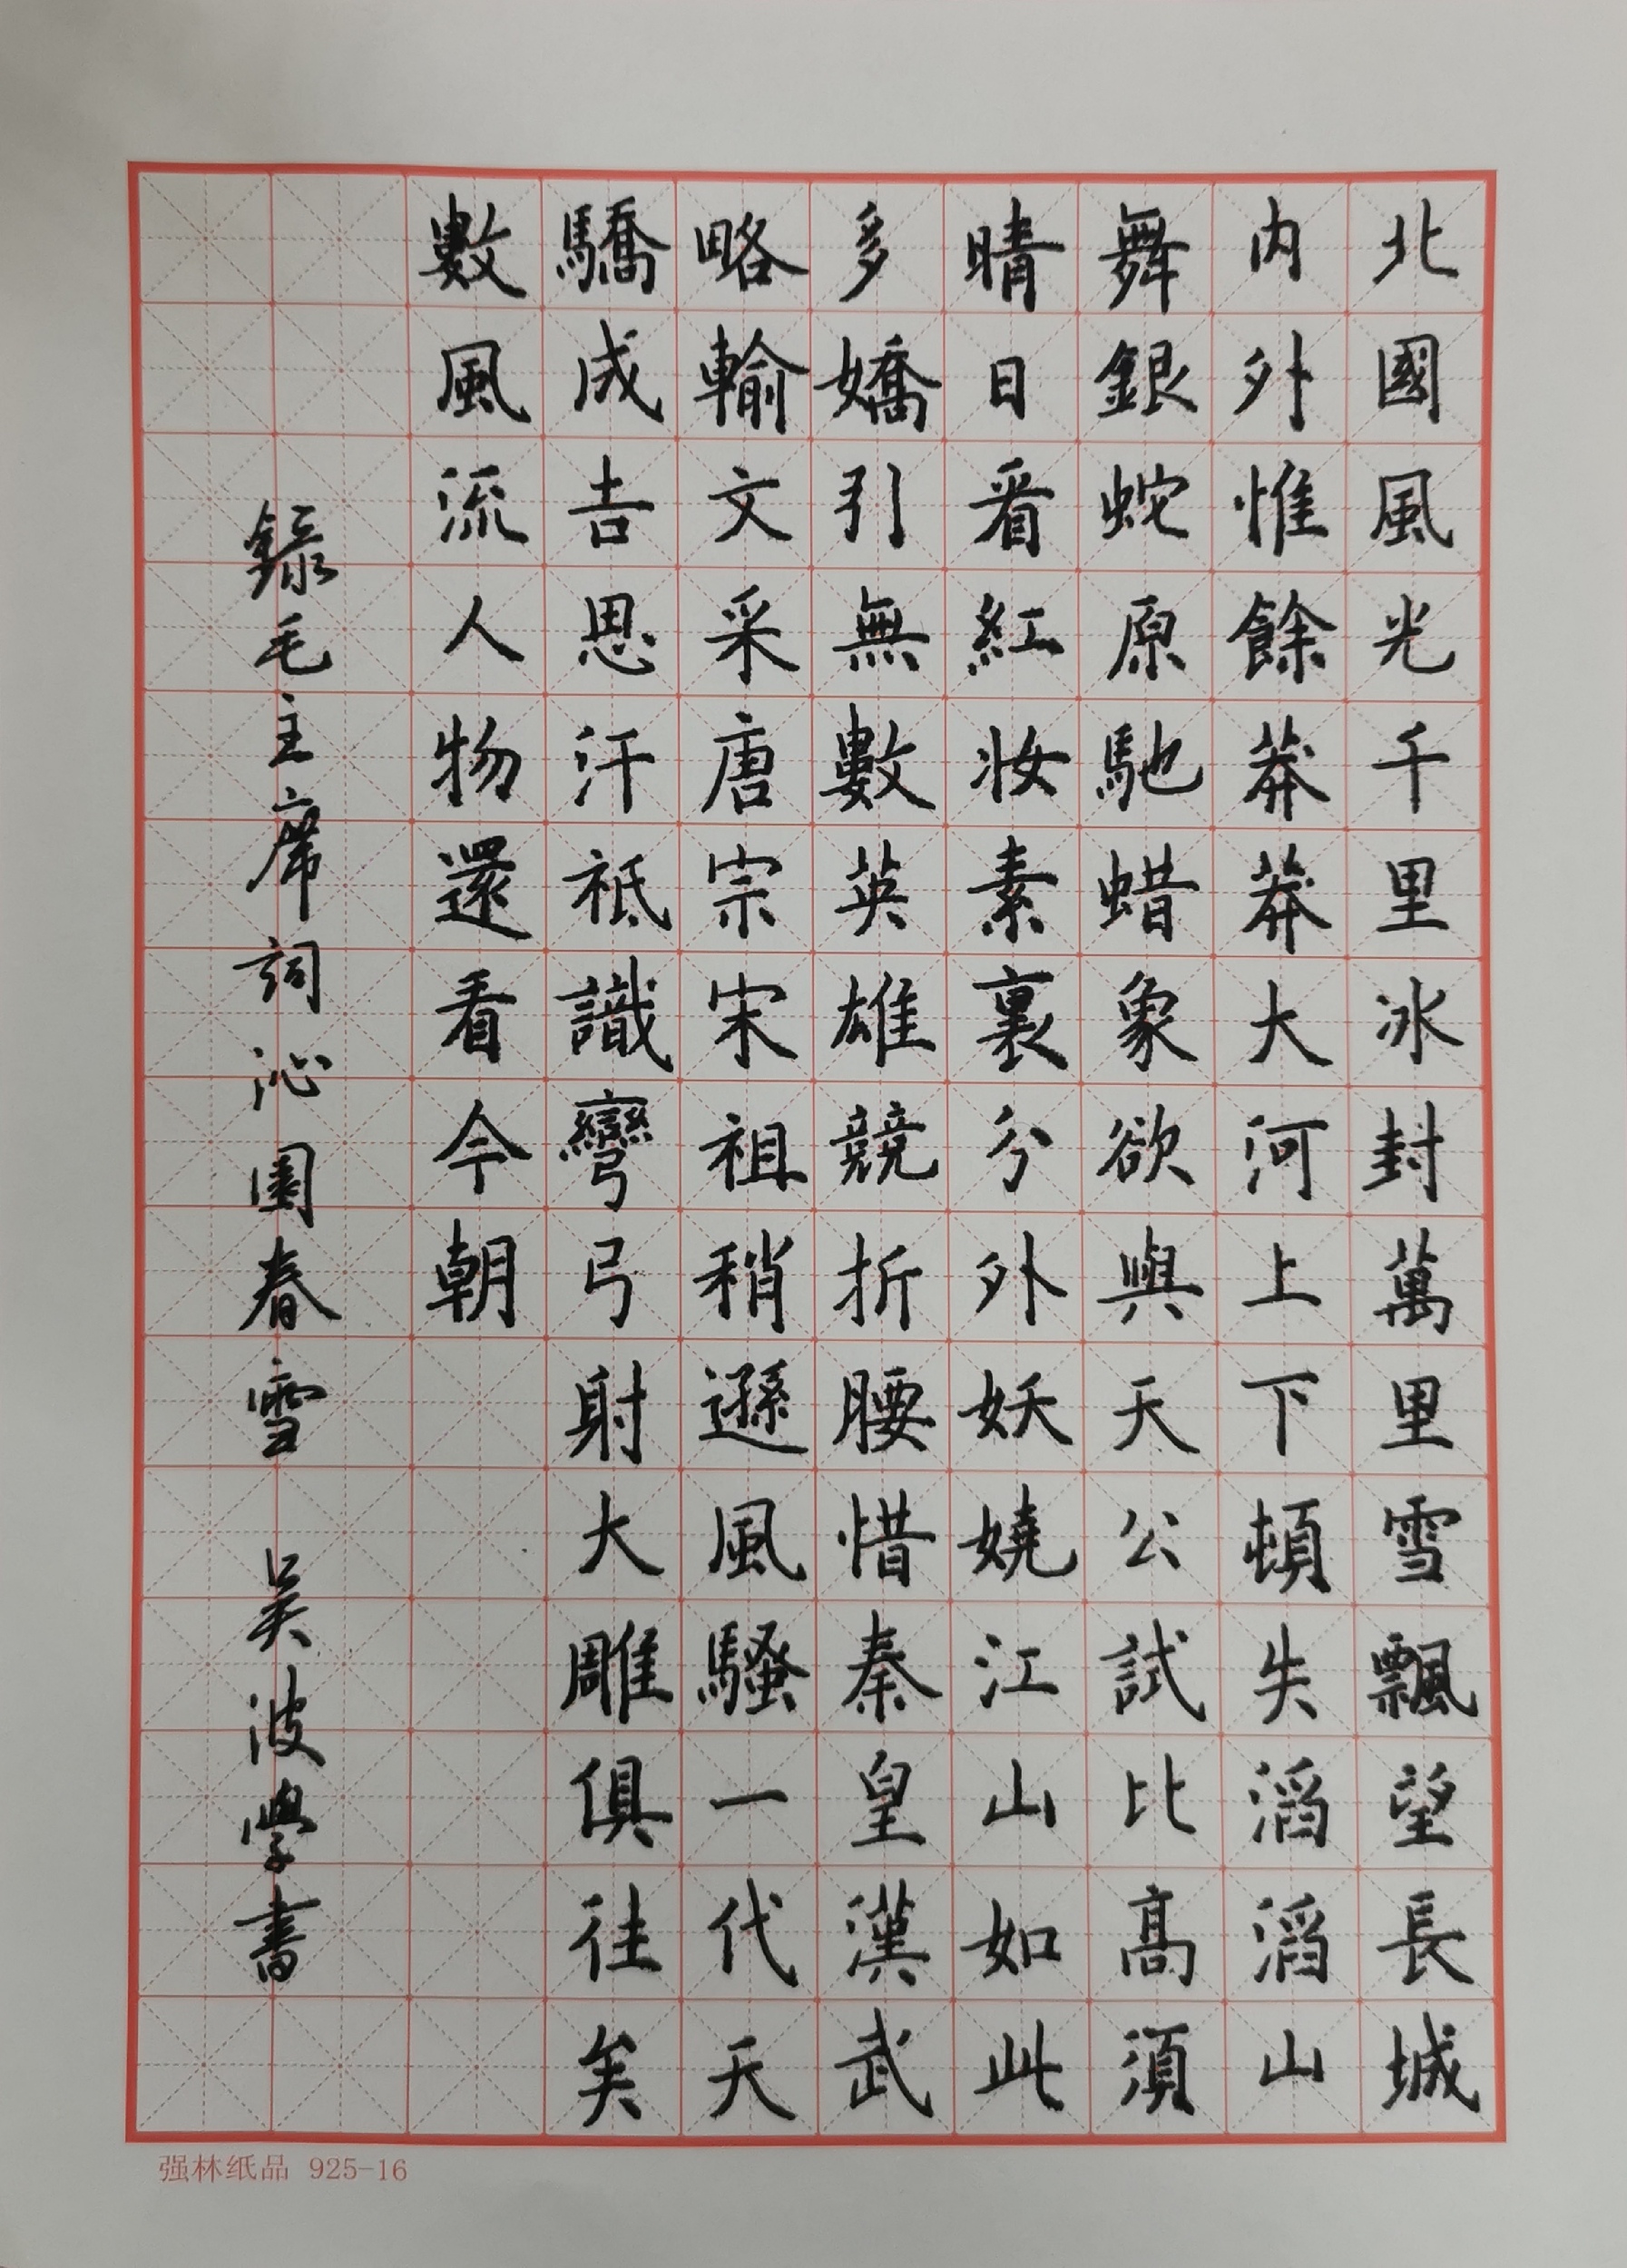 北國風光千里冰封萬里雪飄望長城
内外惟餘莽莽大河上下頓失滔滔山
舞銀蛇原馳蜡象欲與天公試比高須
晴日看紅妝素裹兮外妖嬈江山如此
多嬌引無數英雄競折腰惜秦皇漢武
略輸文采唐宗宋祖稍遜風騷一代天
驕成吉思汗祗識彎弓射大雕俱往矣
數風流人物還看今朝
錄毛主席詞沁園春雪 吴波學書
强林纸品 925-16